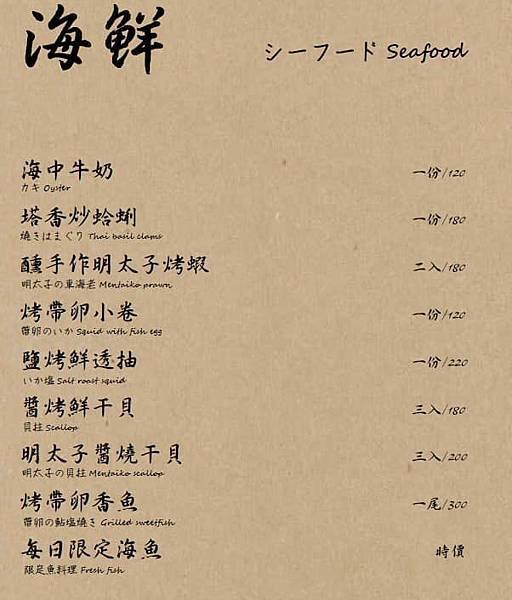 海鮮 シーフード Seafood
海中牛奶 一份/120
カキ Oyster
塔香炒蛤蜊 一份/180
焼きはまぐり Thai basil clams
醺手作明太子烤蝦 二入/180
明太子の車海老 Mentaiko prawn
烤帶卵小卷 一份/120
帶卵のいか Squid with fish egg
鹽烤鮮透抽 一份/220
いか塩 Salt roast squid
醬烤鮮干貝 三入/180
貝柱 Scallop
明太子醬燒干貝 三入/200
明太子の貝柱 Mentaiko scallop
烤帶卵香魚 一尾/300
帶卵の鮎塩焼き Grilled sweetfish
每日限定海魚 時價
限定魚料理 Fresh fish